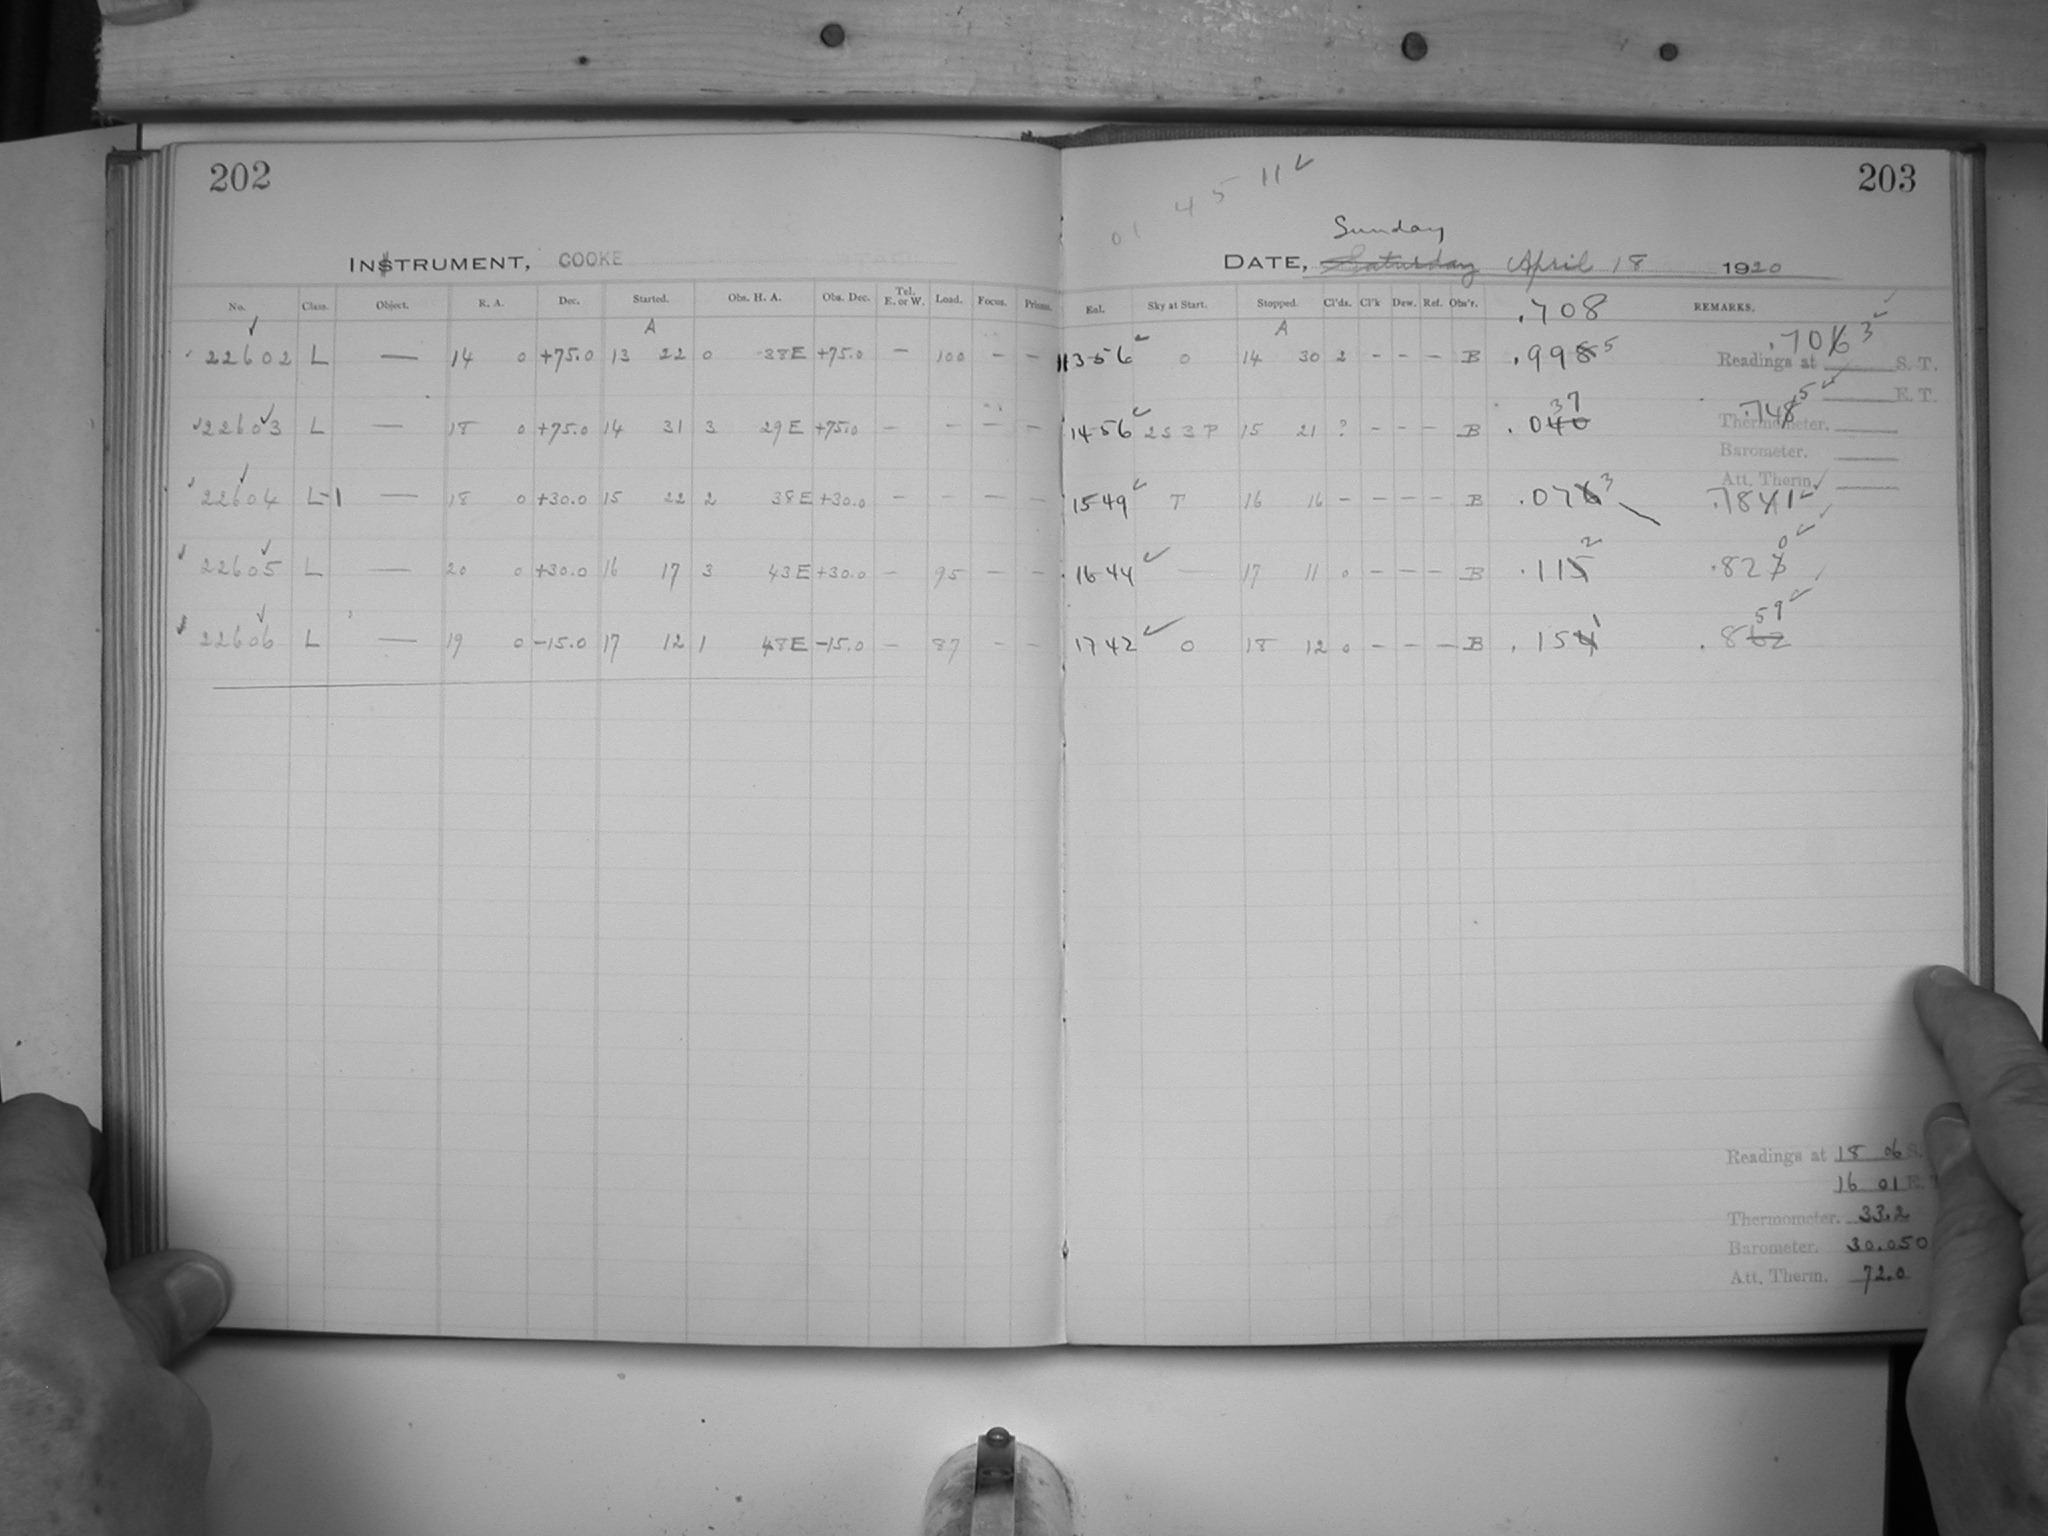 202
INSTRUMENT, COOKE
No. Class. Object. R. A. Dec. Started. Obs. H. A. Obs. Dec. Tel. E. or W. Load. Focus. Prisms.
A
22602 L — 14 0 +75.0 13 22 0 38E +75.0 — 100 — —
22603 L — 18 0 +75.0 14 31 3 29E +75.0 — — — —
22604 L-1 — 18 0 +30.0 15 22 2 38E +30.0 — — — —
22605 L — 20 0 +30.0 16 17 3 43E +30.0 — 95 — —
22606 L — 19 0 -15.0 17 12 1 48E -15.0 — 87 — —
203
01 4 5 11 ✓
Sunday
DATE, Saturday April 18 1920
Sky at Start. Stopped. Cl'ds. Cl'k Dew. Ref. Obs'r. REMARKS.
A
.708
1356 0 14 30 2 — — — B .9985 .70163
Readings at S. T.
E. T.
1456 2S3P 15 21 ? — — — B .040 37 .748 5
Thermometer.
Barometer.
Att. Therm.
1549 T 16 16 — — — — B .0763 .7841
1644 — 17 11 0 — — — B .115 2 .827 0
1742 0 18 12 0 — — — B .154 1 .862 59
Readings at 18 06 S.
16 01 E.
Thermometer. 33.2
Barometer. 30.050
Att. Therm. 72.0